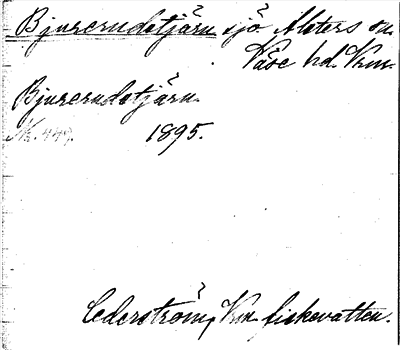 Bjurerudstjärn sjö. Alsters sn.
Väse hd. Vrm.
Bjurerudstjärn
1895.
Cederström, Vrm. fiskevatten.